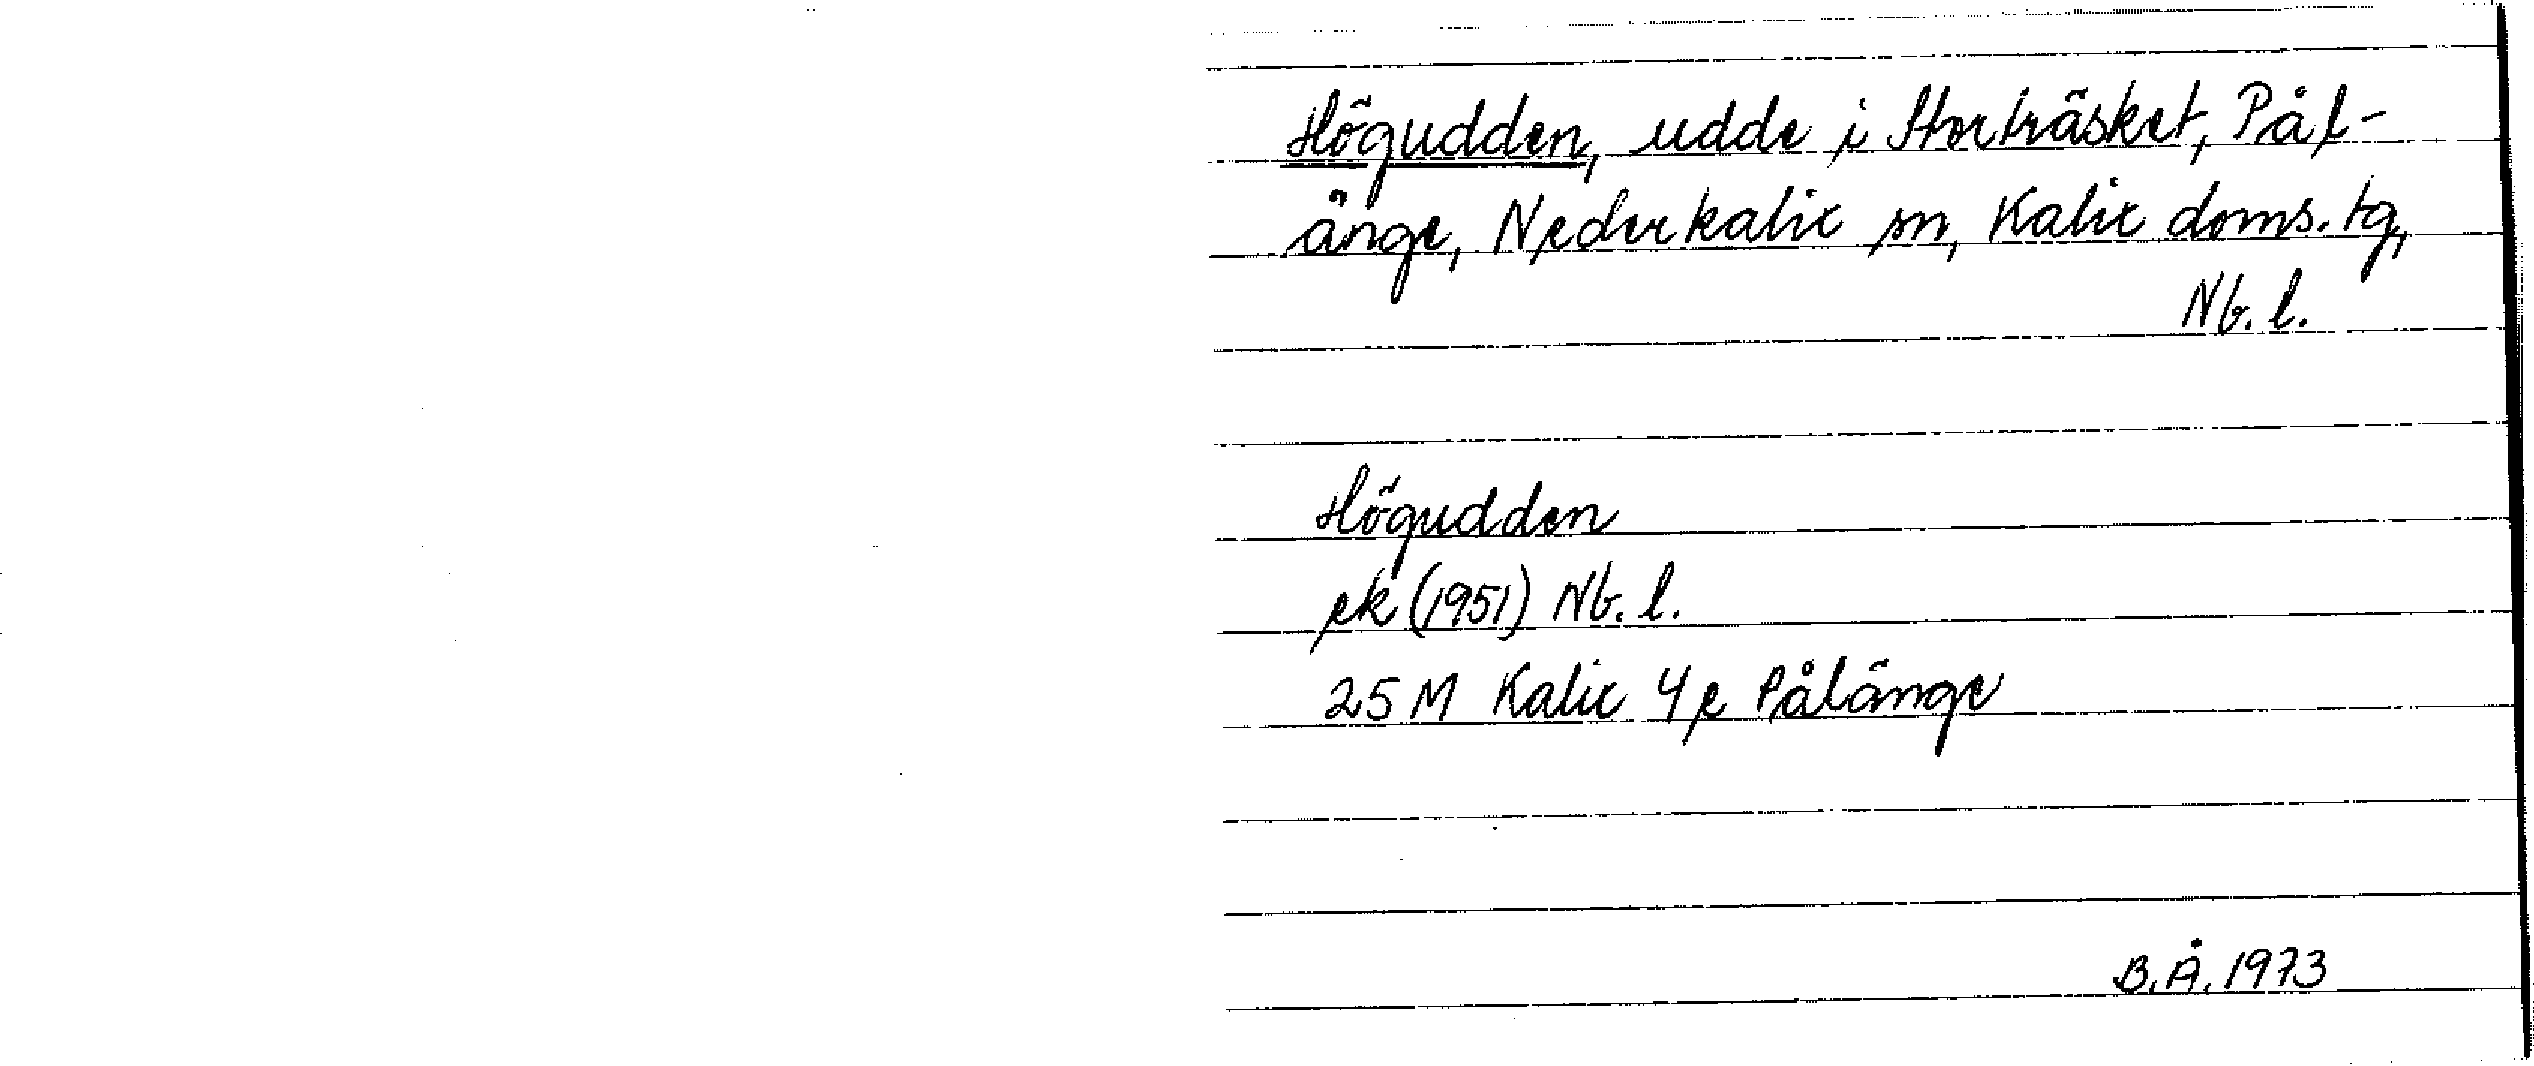 Högudden, udde i Storträsket, Pål-
änge, Nederkalix sn, Kalix doms. tg,
Nb. l.
Högudden
ek (1951) Nb. l.
25 M Kalix 4 e Pålänge
B.Å. 1973